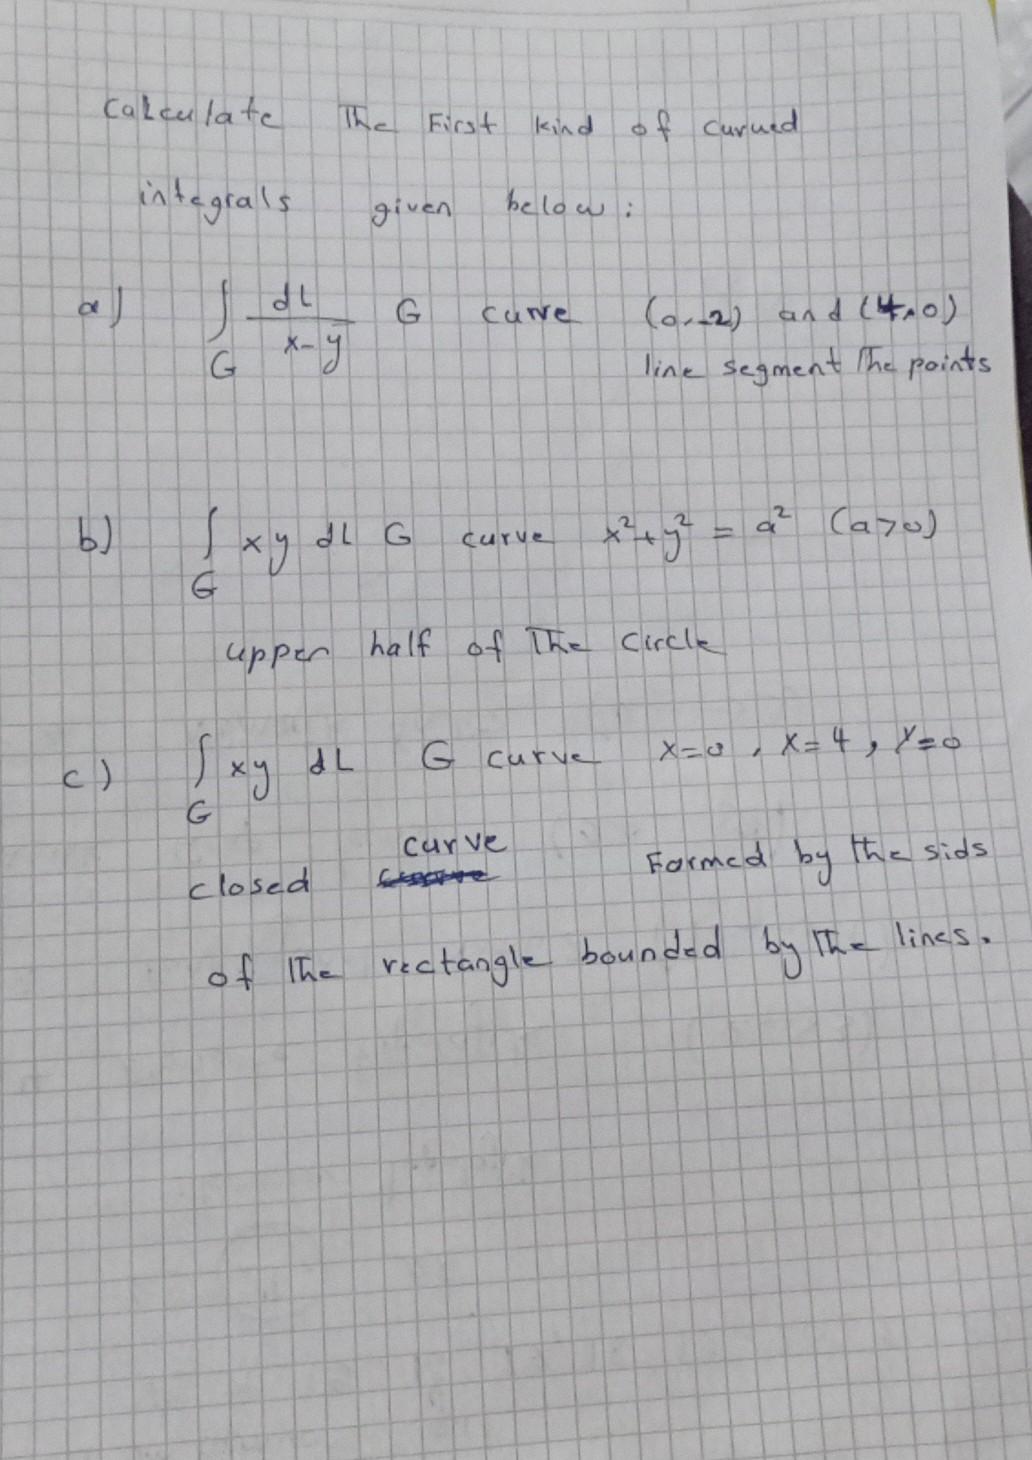 Calculate The First kind of curved
integrals given below:
a) ∫ dL / x-y G curve (0,-2) and (4,0)
G line segment The points
b) ∫ xy dL G curve x²+y² = a² (a>0)
G
upper half of The circle
c) ∫ xy dL G curve x=0, x=4, y=0
G
curve
closed Formed by the sids
of The rectangle bounded by The lines.